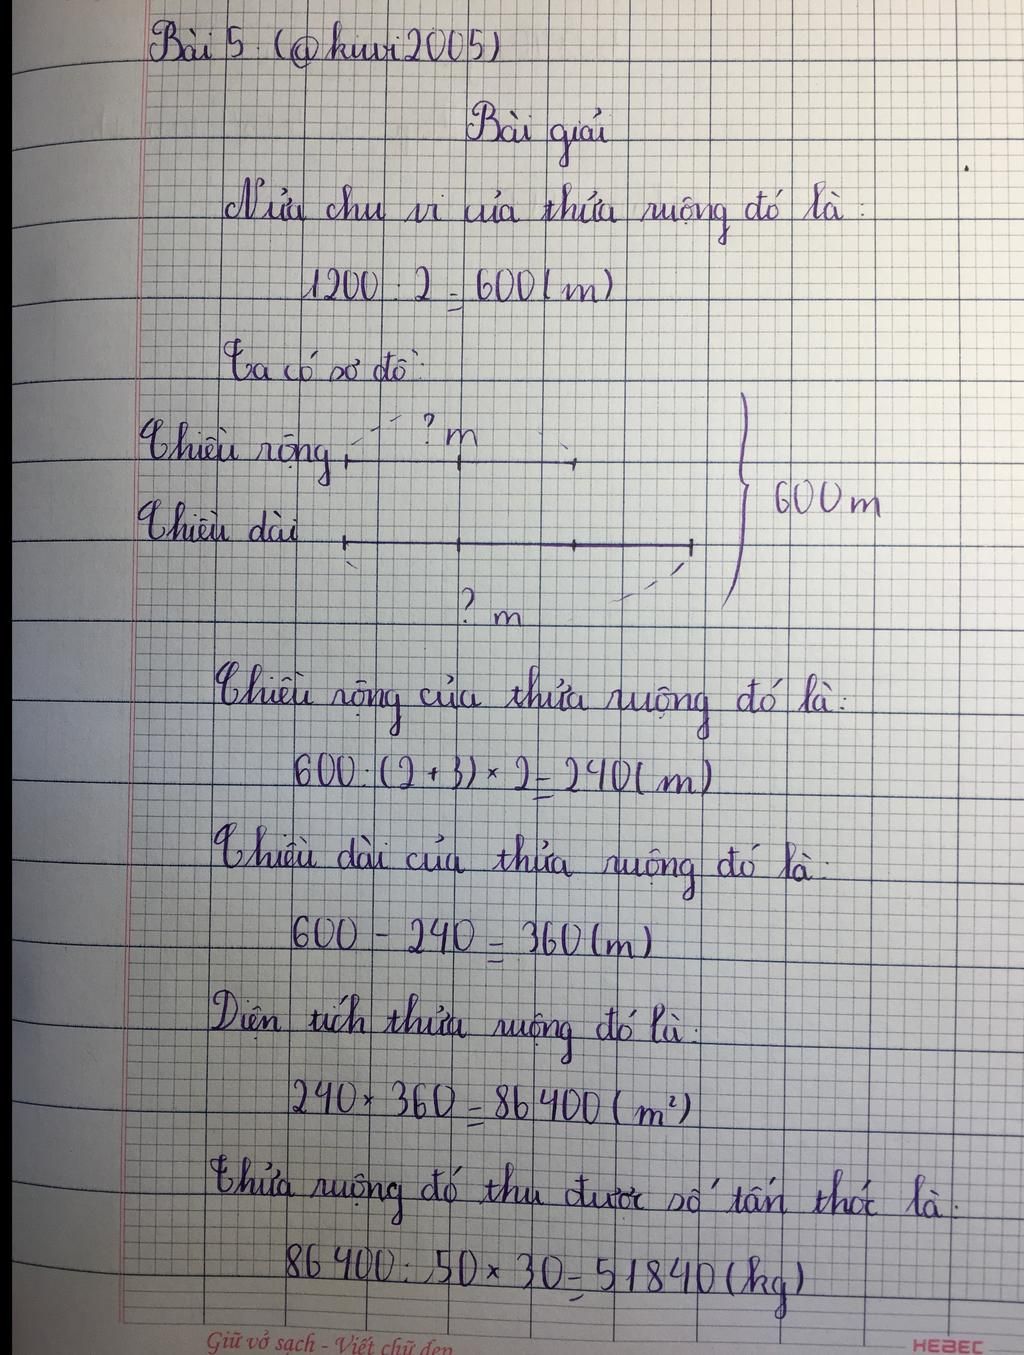 Bài 5. (@kuwi2005)
Bài giải
Nửa chu vi của thửa ruộng đó là:
1200 : 2 = 600 (m)
Ta có sơ đồ:
? m
Chiều rộng
600 m
Chiều dài
? m
Chiều rộng của thửa ruộng đó là:
600 : (2 + 3) × 2 = 240 (m)
Chiều dài của thửa ruộng đó là:
600 - 240 = 360 (m)
Diện tích thửa ruộng đó là:
240 × 360 = 86 400 (m²)
Thửa ruộng đó thu được số tấn thóc là:
86 400 : 50 × 30 = 51840 (kg)
Giữ vở sạch - Viết chữ đẹp
HEBEC